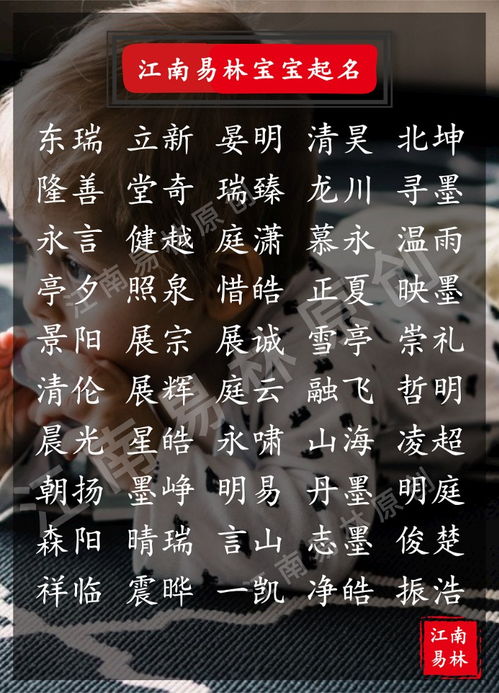 江南易林宝宝起名
东瑞 立新 晏明 清昊 北坤
隆善 堂奇 瑞臻 龙川 寻墨
永言 健越 庭潇 慕永 温雨
亭夕 照泉 惜皓 正夏 映墨
景阳 展宗 展诚 雪亭 崇礼
清伦 展辉 庭云 融飞 哲明
晨光 星皓 永啸 山海 凌超
朝扬 墨峥 明易 丹墨 明庭
森阳 晴瑞 言山 志墨 俊楚
祥临 震晔 一凯 净皓 振浩
江南易林原创
江南易林原创
江南易林原创
江南
易林